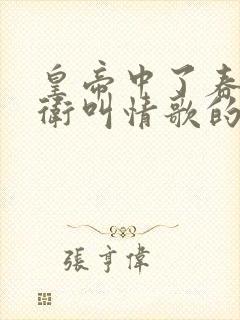 皇帝中了春
衛叫情歌的
張亨偉